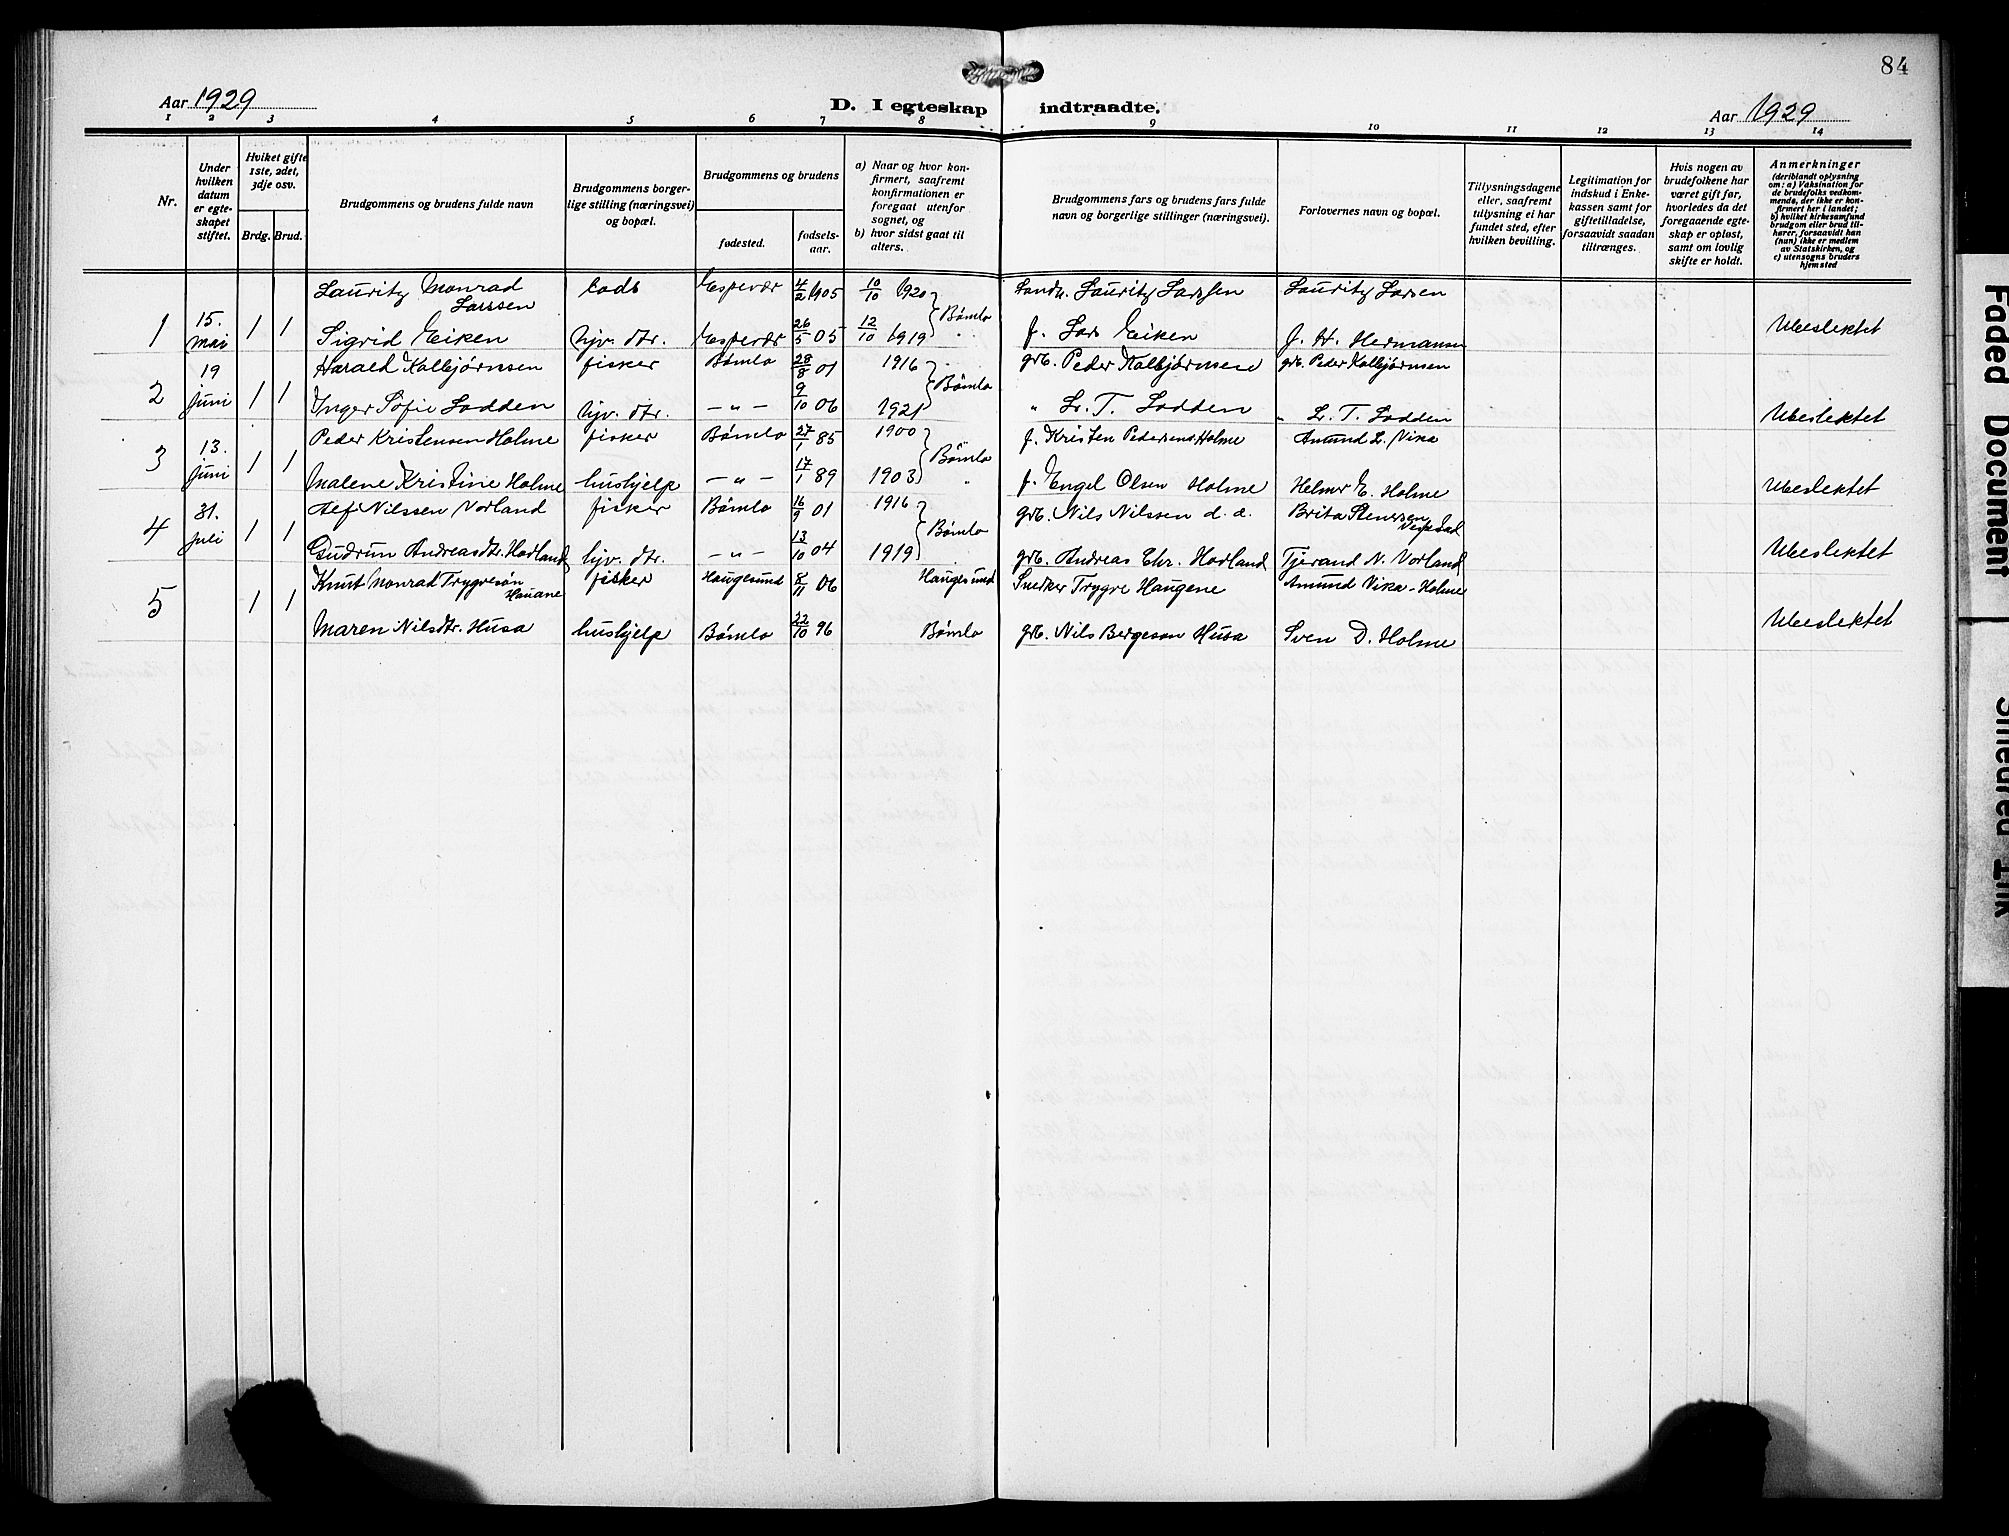 84
Aar 1929
D. I egteskap indtraadte.
Aar 1929
1 2 3 4 5 6 7 8 9 10 11 12 13 14
Nr.
Under hvilken datum er egteskapet stiftet.
Hvilket gifte 1ste, 2det, 3dje osv.
Brdg. Brud.
Brudgommens og brudens fulde navn
Brudgommens borgerlige stilling (næringsvei) og bopæl.
Brudgommens og brudens
fødested.
fødselsaar.
a) Naar og hvor konfirmert, saafremt konfirmationen er foregaat utenfor sognet, og
b) hvor sidst gaat til alters.
Brudgommens fars og brudens fars fulde navn og borgerlige stillinger (næringsvei).
Forlovernes navn og bopæl.
Tillysningsdagene eller, saafremt tillysning ei har fundet sted, efter hvilken bevilling.
Legitimation for indskud i Enkekassen samt for giftetilladelse, forsaavidt saadan tiltrænges.
Hvis nogen av brudefolkene har været gift før, hvorledes da det foregaaende egteskap er opløst, samt om lovlig skifte er holdt.
Anmerkninger
(deriblandt oplysning om: a) Vaksination for de brudefolks vedkommende, der ikke er konfirmert her i landet;
b) hvilket kirkesamfund brudgom eller brud tilhører, forsaavidt han (hun) ikke er medlem av Statskirken, og
c) utensogns bruders hjemsted
Lauritz Monrad Larssen lods Espevær 4/2 1905 10/10 1920 Landh. Lauritz Larssen Lauritz Larsen
1 15. mai 1 1 Sigrid Eiken hjv. dtr. Espevær 26/5 05 12/10 1919 Bømlo f. Lars Eiken J. H. Hermansen Ubeslektet
19 Harald Kolbjørnsen fisker Bømlo 28/8 01 1916 grb. Peder Kolbjørnsen grb. Peder Kolbjørnsen
2 juni 1 1 Inger Sofie Lodden hjv. dtr. —„— 9/10 06 1921 Bømlo „ L. T. Lodden „ L. T. Lodden Ubeslektet
13. Peder Kristensen Holme fisker Bømlo 27/1 85 1900 f. Kristen Pedersen Holme Amund L. Vika
3 juni 1 1 Malene Kristine Holme hushjelp —„— 17/1 89 1903 Bømlo f. Engel Olsen Holme Helmer E. Holme Ubeslektet
31. Alf Nilssen Vorland fisker Bømlo 16/9 01 1916 grb. Nils Nilssen d. e. Brita Stenersen
4 juli 1 1 Gudrun Andreasdtr. Hovland hjv. dtr. —„— 13/10 04 1919 Bømlo grb. Andreas Chr. Hovland Tjerand N. Vorland Ubeslektet
Knut Monrad Trygvesøn Hauane fisker Haugesund 8/11 06 Haugesund Snedker Trygve Haugene Amund Vika - Holme
5 1 1 Maren Nilsdtr. Husa hushjelp Bømlo 22/10 96 Bømlo grb. Nils Bergeson Husa Sven D. Holme Ubeslektet
Faded Document
Smeared Ink